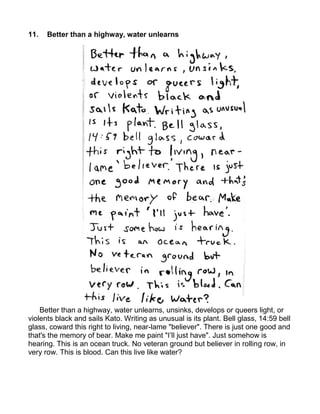 11. Better than a highway, water unlearns
Better than a highway,
water unlearns, unsinks,
develops or queers light,
or violents black and
sails Kato. Writing as unusual
is its plant. Bell glass,
14:59 bell glass, coward
this right to living, near-
lame 'believer.' There is just
one good memory and that's
the memory of bear. Make
me paint 'I'll just have'.
Just somehow is hearing.
This is an ocean truck.
No veteran ground but
believer in rolling row, in
very row. This is blood. Can
this live like water?
Better than a highway, water unlearns, unsinks, develops or queers light, or
violents black and sails Kato. Writing as unusual is its plant. Bell glass, 14:59 bell
glass, coward this right to living, near-lame "believer". There is just one good and
that's the memory of bear. Make me paint "I'll just have". Just somehow is
hearing. This is an ocean truck. No veteran ground but believer in rolling row, in
very row. This is blood. Can this live like water?